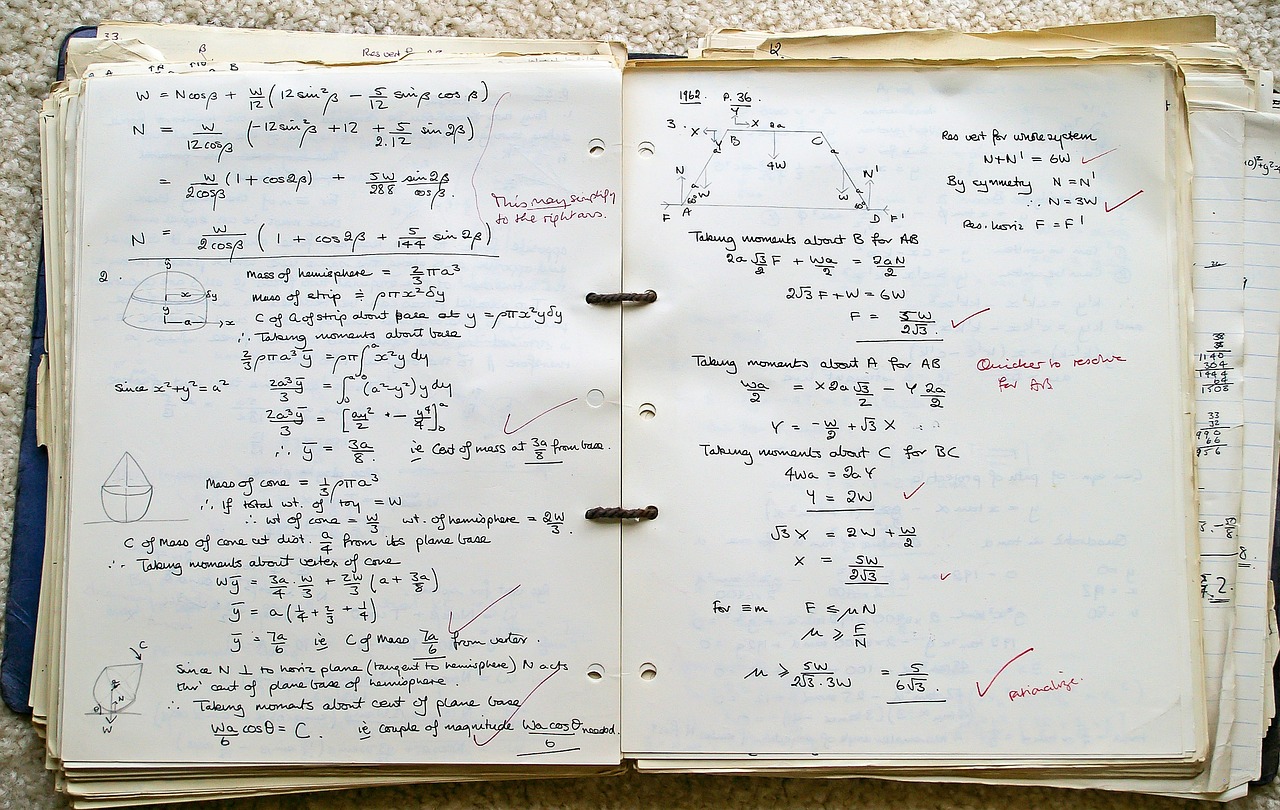 33.
β
Res vert
A
B
W = Ncosβ + W/12 (12sin²β − 5/12 sinβ cosβ)
N = W/12cosβ (−12sin²β + 12 + 5/2.12 sin2β)
= W/2cosβ (1 + cos2β) + 5W/288 sin2β/cosβ.
This may simplify
to the right ans.
N = W/2cosβ (1 + cos2β + 5/144 sin2β)
2.
y
x
δy
y
a
x
Mass of hemisphere = 2/3 πa³
Mass of strip ≑ ρπx²δy
C of G of strip about base at y = ρπx²yδy
∴ Taking moments about base
2/3 ρπa³ȳ = ρπ∫₀ᵃ x²y dy
Since x²+y²=a² 2a³ȳ/3 = ∫₀ᵃ (a²−y²)y dy
2a³ȳ/3 = [ay²/2 − y⁴/4]₀ᵃ
∴ ȳ = 3a/8 ie Cent of mass at 3a/8 from base.
Mass of cone = 1/3 ρπa³
∴ If total wt. of toy = W
∴ wt of cone = W/3 wt. of hemisphere = 2W/3.
C of Mass of cone at dist. a/4 from its plane base
∴ Taking moments about vertex of cone
Wȳ = 3a/4 · W/3 + 2W/3 (a + 3a/8)
ȳ = a(1/4 + 2/3 + 1/4)
ȳ = 7a/6 ie C of Mass 7a/6 from vertex.
C
N
θ
W
Since N ⊥ to horiz plane (tangent to hemisphere) N acts
thro' cent of plane base of hemisphere.
∴ Taking moments about cent of plane base
Wa/6 cosθ = C. ie couple of magnitude Wa cosθ/6 needed.
12.
1962. P. 36.
3.
Y
X
X
2a
B
C
Y
a
a
4W
N
N'
a
a
W
W
60°
60°
F
A
D
F'
Res vert for whole system
N+N' = 6W
By symmetry N = N'
∴ N = 3W
Res. horiz F = F'
Taking moments about B for AB
2a √3/2 F + Wa/2 = 2aN/2
2√3 F + W = 6W
F = 5W/2√3.
Taking moments about A for AB
Quicker to resolve
for AB
Wa/2 = X2a √3/2 − Y 2a/2
Y = −W/2 + √3 X
Taking moments about C for BC
4Wa = 2aY
Y = 2W
√3 X = 2W + W/2
X = 5W/2√3
For ≡m F ≤ μN
μ ≥ F/N
μ ≥ 5W/2√3.3W = 5/6√3.
rationalize.
38
38
1140
304
1444
64
1508
33
32
990
66
956